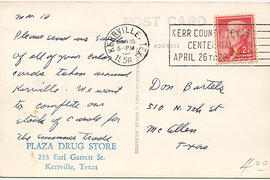 Mar 16
Please send us samples
of all of your color
cards taken around
Kerrville. We want
to complete our
stock of cards for
the summer trade
PLAZA DRUG STORE
233 Earl Garrett St.
Kerrville, Texas
POST CARD
ADDRESS
KERRVILLE, TEX.
6-PM
1956
KERR COUNTY, TEXAS
CENTENNIAL
APRIL 26 TO 28
2¢
Don Bartels
510 N. 7th St
McAllen
Texas